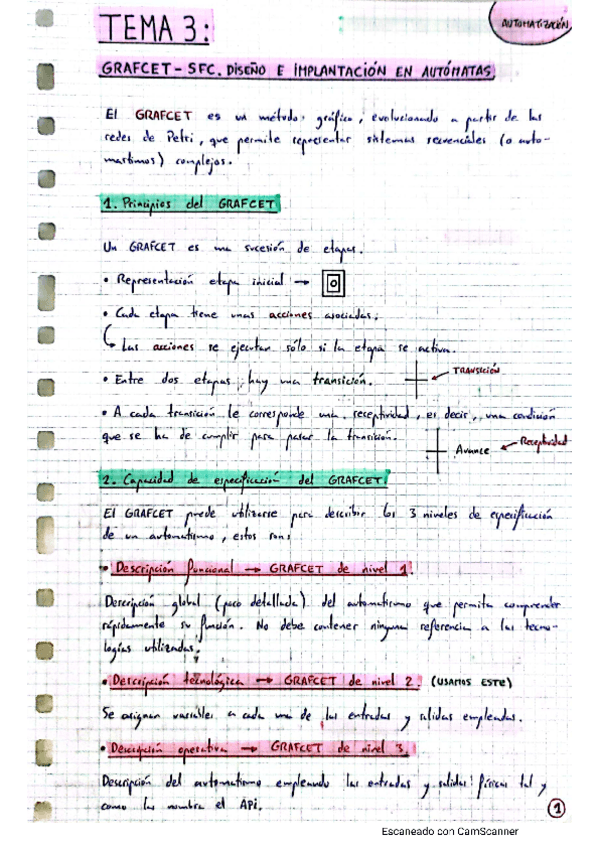 AUTOMATIZACIÓN
TEMA 3:
GRAFCET - SFC. DISEÑO E IMPLANTACIÓN EN AUTÓMATAS
El GRAFCET es un método gráfico, evolucionado a partir de las
redes de Petri, que permite representar sistemas secuenciales (o auto-
matismos) complejos.
1. Principios del GRAFCET
Un GRAFCET es una sucesión de etapas.
• Representación etapa inicial → 0
• Cada etapa tiene unas acciones asociadas.
↳ Las acciones se ejecutan sólo si la etapa se activa.
• Entre dos etapas, hay una transición. ← TRANSICIÓN
• A cada transición le corresponde una receptividad, es decir, una condición
que se ha de cumplir para pasar la transición.
Avance ← Receptividad
2. Capacidad de especificación del GRAFCET.
El GRAFCET puede utilizarse para describir los 3 niveles de especificación
de un automatismo, estos son:
• Descripción funcional → GRAFCET de nivel 1.
Descripción global (poco detallada) del automatismo que permita comprender
rápidamente su función. No debe contener ninguna referencia a las tecno-
logías utilizadas.
• Descripción tecnológica → GRAFCET de nivel 2. (USAMOS ESTE)
Se asignan variables a cada una de las entradas y salidas empleadas.
• Descripción operativa → GRAFCET de nivel 3.
Descripción del automatismo empleando las entradas y salidas físicas tal y
como las nombra el APi.
1
Escaneado con CamScanner